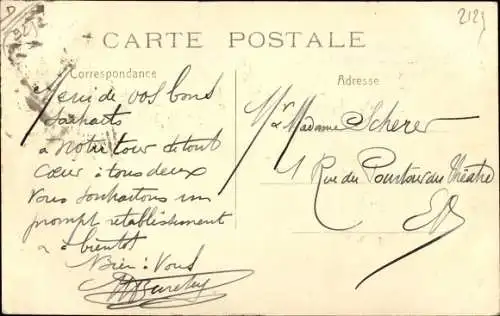 D
2125
CARTE POSTALE
Correspondance
Adresse
Merci de vos bons
souhaits
a notre tour de tout
cœur à tous deux
Vous souhaitons un
prompt rétablissement
à bientôt
Bien à Vous
Mr & Madame Scherer
1 Rue du Pourtour du Théatre